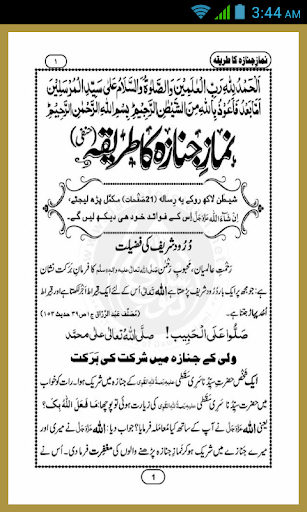 3:44 AM
نمازِ جنازہ کا طریقہ
١
اَلْحَمْدُ لِلّٰهِ رَبِّ الْعٰلَمِیْنَ وَالصَّلٰوةُ وَالسَّلَامُ عَلٰی سَیِّدِ الْمُرْسَلِیْنَ
اَمَّا بَعْدُ فَاَعُوْذُ بِاللّٰهِ مِنَ الشَّیْطٰنِ الرَّجِیْمِ بِسْمِ اللّٰهِ الرَّحْمٰنِ الرَّحِیْمِ
نمازِ جنازہ کا طریقہ (حنفی)
شیطٰن لاکھ روکے یہ رسالہ (21صفحات) مکمَّل پڑھ لیجئے،
اِنْ شَآءَ اللّٰه عَزَّوَجَلَّ اِس کے فوائد خود ہی دیکھ لیں گے۔
دُرُود شریف کی فضیلت
رَحمتِ عالمیان، محبوبِ رَحمٰن صَلَّی اللہُ تعالٰی علیہ واٰلہٖ وسلَّم کا فرمانِ بَرَکت نشان
ہے: جو مجھ پر ایک بار دُرُود شریف پڑھتا ہے اللہ تعالٰی اُس کیلئے ایک قیراط اَجْر لکھتا ہے اور قیراط
اُحُد پہاڑ جتنا ہے۔ (مُصَنَّف عبدُ الرَّزّاق ج١ ص٣٩ حدیث ١٥٣)
صَلُّوْا عَلَی الْحَبِیْب! صلَّی اللہُ تعالٰی علٰی محمَّد
ولی کے جنازہ میں شرکت کی بَرَکت
ایک شخص حضرتِ سیِّدُنا سَری سَقَطی کے جنازہ میں شریک ہوا۔ رات کو خواب
میں حضرتِ سیِّدُنا سَری سَقَطی کی زیارت ہوئی تو پوچھا: مَا فَعَلَ اللّٰهُ بِکَ؟
یعنی اللہ عَزَّوَجَلَّ نے آپ کے ساتھ کیا مُعامَلہ فرمایا؟ جواب دیا: اللہ عَزَّوَجَلَّ نے میری اور
میرے جنازے میں شریک ہو کر نمازِ جنازہ پڑھنے والوں کی مغفِرت فرما دی۔ اُس نے
1